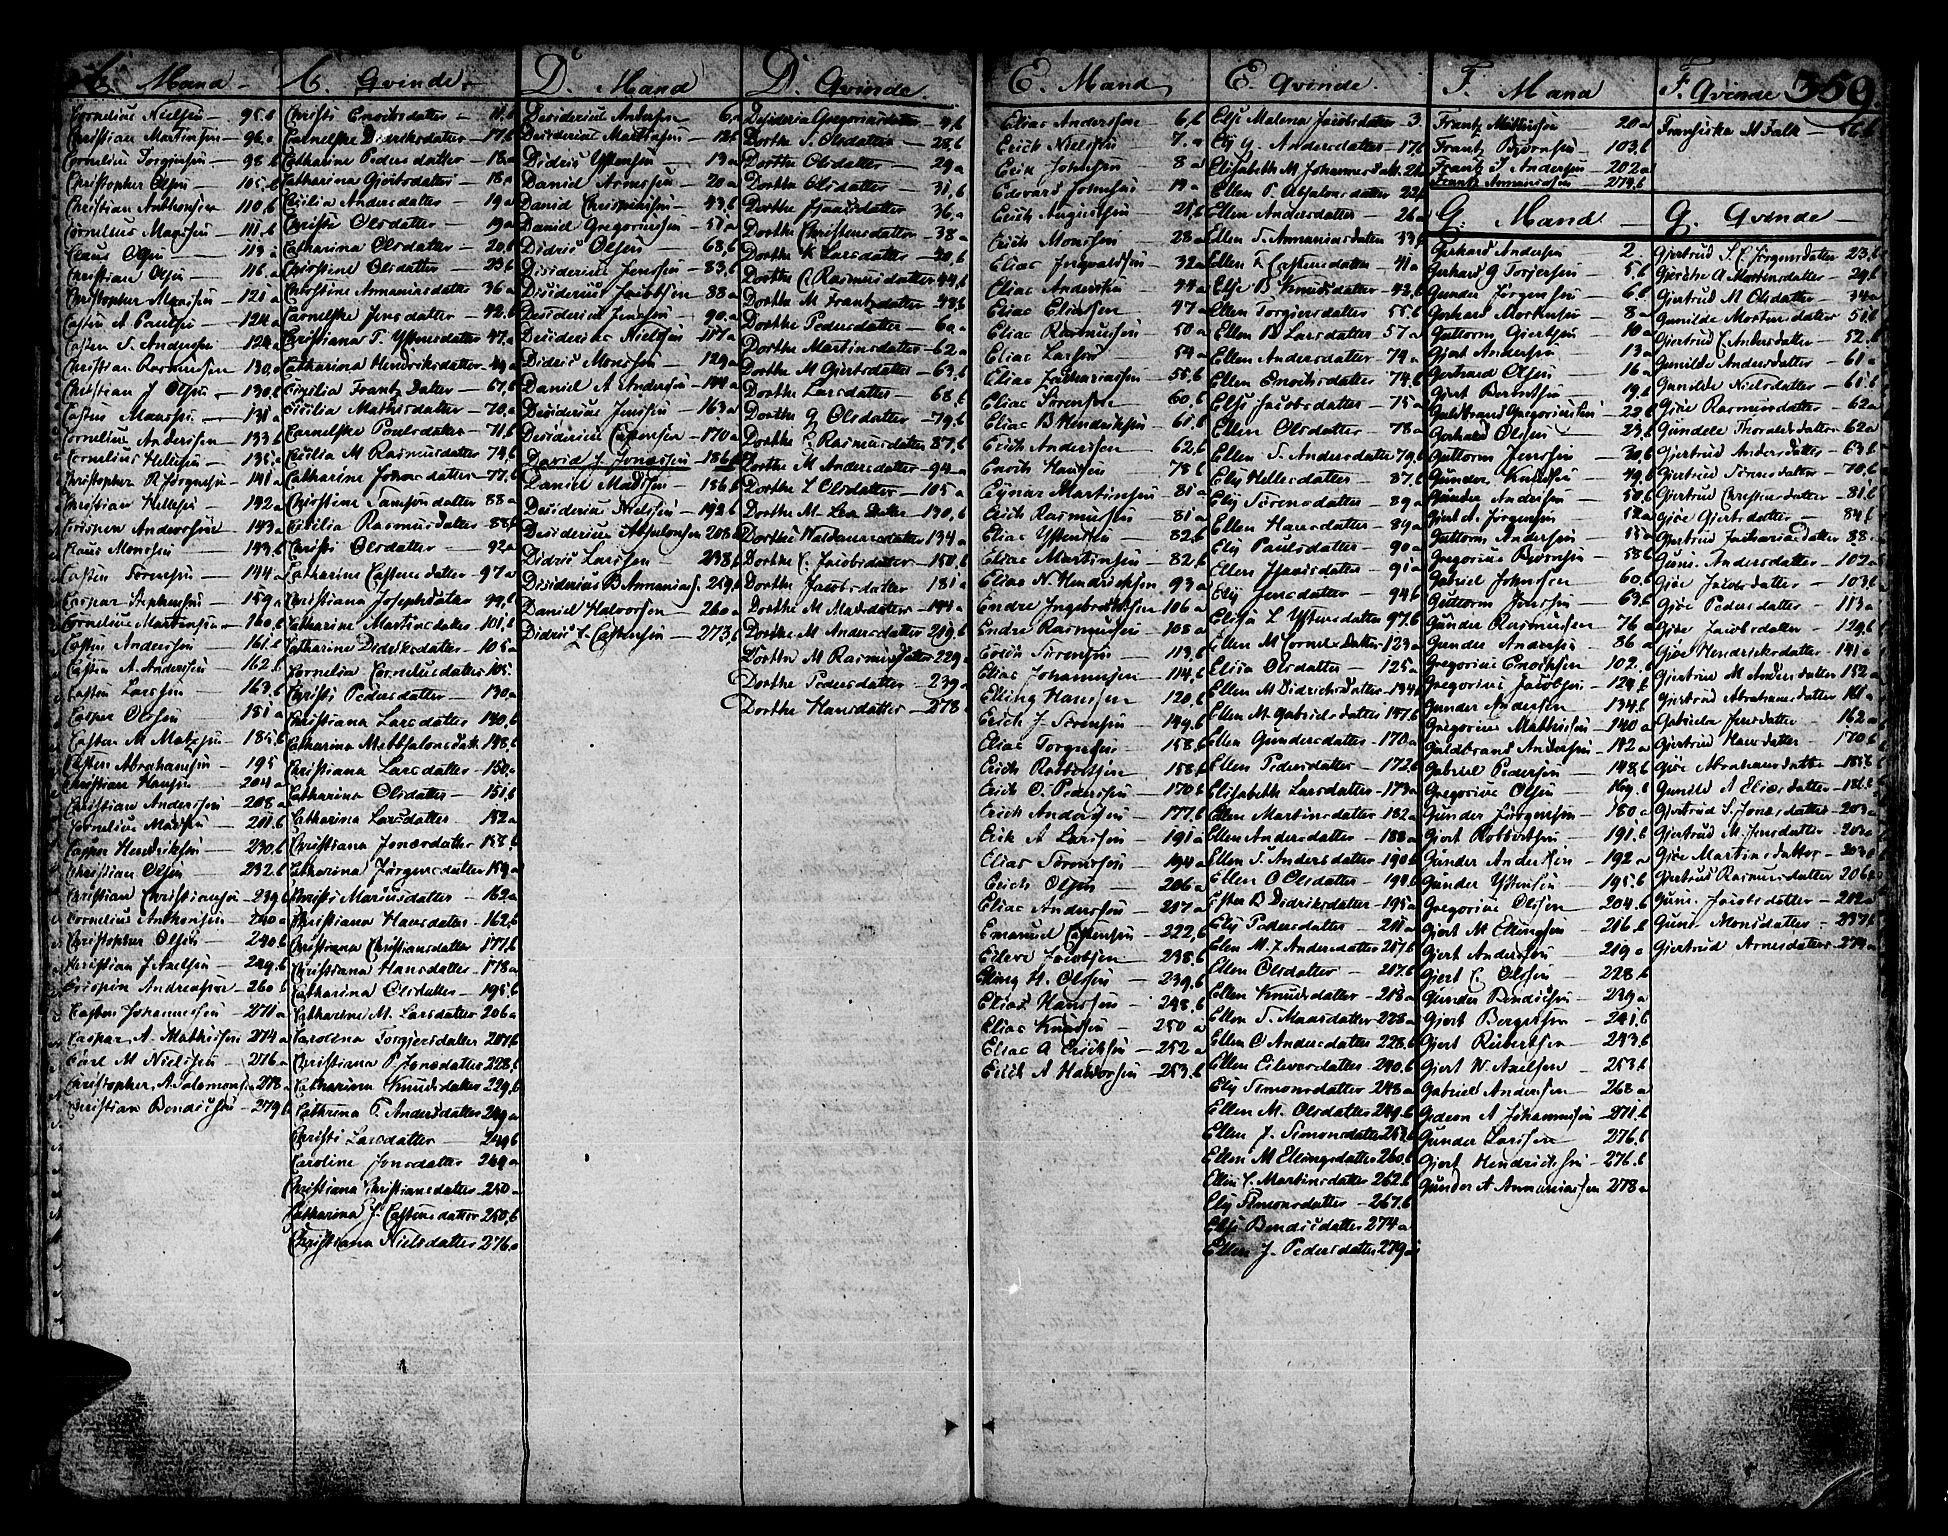 C. Mand
Cornelius Nielsen 95.b
Christian Martinsen 96.a
Cornelius Torgersen 98.b
Christopher Olsen 105.b
Christian Anthonsen 110.b
Cornelius 111.b
Claus Olsen 113.a
Christian Olsen 116.a
Christopher 121.a
Casten A Paulsen 124.a
Casten T. Andersen 124.a
Christian Rasmussen 130.a
Christian J Olsen 130.b
Casten Monssen 131.a
Cornelius Anderssen 133.b
Cornelius Hellesen 135.a
Christopher R Jørgensen 141.a
Christian Hellesen 142.a
Crispen Anderssen 143.a
Klaus Monssen 143.b
Casten Sørensen 144.a
Caspar Stephensen 159.a
Cornelius Martinsen 160.b
Casten Anderssen 161.b
Casten A. Anderssen 162.b
Casten Larssen 163.b
Casper Olssen 181.a
Casten M. 185.b
Casten Abrahamsen 195
Christian Hansen 204.a
Christian Anderssen 208.a
Cornelius Madsen 211.b
Casper Hendriksen 230.b
Christian Olsen 232.b
Christian Christiansen 239.b
Cornelius Anthonsen 240.a
Christopher Olsen 240.b
Christian J Axelsen 249.b
Crispin Andreassen 260.b
Casten Johannessen 271.a
Caspar A. Mathissen 274.a
Carl M Nielssen 276.a
Christopher A. Salomonsen 278.a
Christian Bendicsen 279.b
C. Qvinde
Christi Enochsdatter 11.b
Cornelske Dideriksdatter 17.b
Catharine Pedersdatter 18.a
Catharina Giertsdatter 18.a
Cicilia Andersdatter 19.a
Christi Olsdatter 19.a
Catharina Olsdatter 20.b
Christine Olsdatter 23.b
Christine Annaniasdatter 36.a
Cornelske Jensdatter 42.b
Christiana T. Ystensdatter 47.a
Catharina Hendriksdatter 49.a
Cicilia Frantzdatter 67.b
Cicilia Mathisdatter 70.a
Cornelske Poulsdatter 71.b
Cicilia M Rasmusdatter 74.b
Catharine Johnsdatter 77.b
Christine Samsonsdatter 88.a
Cicilia Rasmusdatter 88.b
Christi Olsdatter 92.a
Catharine Castensdatter 97.a
Christiana Josephsdatter 99.b
Catharine Martinsdatter 101.b
Catharine Dideriksdatter 105.a
Cornelia Corneliusdatter 105.
Christi Pedersdatter 130.a
Christiana Larsdatter 140.b
Catharina 148.b
Christiana Larsdatter 150.a
Catharina Olsdatter 151.b
Catharina Larsdatter 152.a
Christiana Jonasdatter 158.b
Catharina Jørgensdatter 159.a
Christi Mariusdatter 162.a
Christiana Hansdatter 162.b
Christiana Christiansdatter 177.b
Christiana Hansdatter 178.a
Catharina Olsdatter 195.b
Catharine M. Larsdatter 206.a
Carolina Torgersdatter 207.b
Christiana P. Jonsdatter 228.b
Catharina Knudsdatter 229.b
Cathrina T. Andersdatter 249.a
Christi Larsdatter 249.b
Caroline Jonsdatter 249.a
Christiana Christiansdatter 250.a
Catharina J. Castensdatter 250.b
Christiana Nielsdatter 276.a
D. Mand
Desiderius Andersen 6.a
Desiderius Mathiasen 12.b
Didric Ystensen 19.a
Daniel Arnessen 20.a
Daniel Christensen 43.b
Daniel Gregoriussen 51.a
Didric Olsen 68.b
Desiderius Jenssen 83.b
Desiderius Jacobsen 88.a
Desiderius Jenssen 90.a
Desiderius Nielsen 117.a
Didric Monssen 129.a
Daniel A Anderssen 144.a
Desiderius Jenssen 163.a
Desiderius Castensen 170.a
David J. Jonassen 186
Daniel Madssen 186.b
Desiderius Nielsen 192.b
Desiderius Abshalonsen 208.b
Didric Larssen 238.b
Desiderius B Annanias. 259.b
Daniel Halvorsen 260.a
Didric C. Castensen 273.b
D. Qvinde
Desideria Gregoriusdatter 4.b
Dorthe S. Olsdatter 28.b
Dorthe Olsdatter 29.a
Dorthe Olsdatter 31.b
Dorthe Isaacsdatter 36.a
Dorthe Christensdatter 38.a
Dorthe K Larsdatter 40.b
Dorthe C. Rasmusdatter 44.b
Dorthe M Frantzdatter 48.b
Dorthe Pedersdatter 60.a
Dorthe Martinsdatter 62.a
Dorthe M Giertsdatter 63.b
Dorthe Larsdatter 68.b
Dorthe G Olsdatter 79.b
Dorthe C. Rasmusdatter 87.b
Dorthe M Andersdatter 94.a
Dorthe L Olsdatter 105.a
Dorthe M. Larsdatter 130.b
Dorthe Waldemarsdatter 134.a
Dorthe C. Jacobsdatter 150.b
Dorthe Jacobsdatter 181.a
Dorthe M Madsdatter 194.a
Dorthe M Andersdatter 219.b
Dorthe M Rasmusdatter 229.a
Dorthe Pedersdatter 239.a
Dorthe Hansdatter 278
E. Mand
Elias Anderssen 6.b
Erich Nielsen 7.a
Erik Johnsen 8.a
Edvard Johnsen 19.a
Erich Augustsen 21.b
Erich Monssen 28.a
Elias Ingvaldssen 32.a
Elias Andersen 44.a
Elias Eliassen 47.a
Elias Rasmussen 50.a
Elias Larsen 54.a
Elias Zachariassen 55.b
Elias Sørensen 60.b
Elias B Hendriksen 61.b
Erich Anderssen 62.b
Enoch Hansen 78.b
Eynar Martinsen 81.a
Erich Rasmussen 81.a
Elias Ystensen 82.b
Elias Martinsen 82.b
Elias N. Hendricksen 93.a
Endre Ingebrethsen 106.a
Endre Rasmussen 108.a
Erich Sørensen 113.b
Elias Johannessen 114.b
Elling Hanssen 120.b
Erich J. Sørensen 149.b
Elias Torgersen 158.b
Erich Robbertsen 158.b
Erich O. Pederssen 170.b
Erich Andersen 177.b
Erik A Larssen 191.a
Elias Sørenssen 194.a
Erich Olsen 206.a
Elias Anderssen 217.a
Emanuel Castensen 222.b
Eilert Jacobsen 238.b
Elling H. Olssen 239.b
Elias Hanssen 248.b
Elias Knudsen 250.a
Elias A Ericksen 252.a
Erich A Halvorsen 253.b
E. Qvinde
Elsi Malena Jacobsdatter 3
Elij Y. Andersdatter 17.b
Elisabeth M Johannesdatt. 21.a
Ellen P. Abshalonsdatter 22.b
Ellen Andersdatter 26.a
Ellen T. Annaniasdatter 33.b
Ellen K Castensdatter 41.a
Elsi B Knudsdatter 42.b
Ellen Torgersdatter 55.b
Ellen B Larsdatter 57.a
Ellen Andersdatter 74.a
Ellen Enochsdatter 74.b
Elsi Jacobsdatter 75.a
Ellen Olsdatter 78.a
Ellen T. Andersdatter 79.b
Elij Hellesdatter 87.b
Elij Sørensdatter 89.a
Ellen Hansdatter 89.a
Elij Paulsdatter 90.a
Ellen Isaacsdatter 91.a
Elij Jensdatter 94.b
Elisa L Ystensdatter 97.b
Ellen M Cornel.s Datter 123.a
Elisa Olsdatter 125.a
Ellen M Didrichsdatter 134.b
Ellen M. Gabrielsdatter 147.b
Ellen Gundersdatter 170.a
Ellen Pedersdatter 172.b
Elisabeth Larsdatter 173.a
Ellen Martinsdatter 182.a
Ellen Andersdatter 188.a
Ellen T. Andersdatter 190.b
Ellen O Olsdatter 194.b
Ester B Didriksdatter 195.a
Elij Pedersdatter 211.a
Elen M. J Andersdatter 217.b
Ellen Olsdatter 217.b
Ellen Knudsdatter 218.a
Ellen T. Monsdatter 228.a
Ellen C Andersdatter 228.b
Ellen Eilevsdatter 240.b
Elij Simonsdatter 248.a
Ellen M. Olsdatter 249.b
Ellen J. Simonsdatter 253.b
Ellen M Ellingsdatter 260.b
Ellen C. Martinsdatter 262.b
Elij Simonsdatter 267.b
Elsi Bendicsdatter 274.a
Ellen J. Pedersdatter 279.a
F. Mand
Frantz Mathissen 20.a
Frantz Bjørnsen 103.b
Frantz T. Andersen 202.a
Frantz Annaniassen 279.b
G. Mand
Gerhard Andersen 2
Gerhard G Torjersen 5.b
Gunder Jørgensen 6.b
Gerhard Mortensen 8.a
Guttorm Giertsen 10.a
Giert Andersen 13.a
Gerhard Olsen 16.a
Giert Berntsen 19.b
Guldbrand Gregoriussen 22.b
Gerhard Olsen 23.b
Guttorm Jenssen 30.b
Gunder Knudsen 49.b
Gunder Anderssen 50.b
Giert A. Jørgensen 52.a
Guttorm Anderssen 55.a
Gregorius Bjørnsen 58.b
Gabriel Johnsen 60.b
Guttorm Jonssen 63.b
Gunder Rasmussen 76.a
Gunder Anderssen 86.a
Gregorius Enochsen 102.b
Gregorius Jacobsen 124.b
Gunder Andersen 134.b
Gregorius Mathissen 140.a
Guldbrand Anderssen 142.a
Gabriel Pedersen 148.b
Gregorius Olsen 169.b
Gunder Jørgensen 180.a
Gjert Robbertsen 191.b
Gunder Andersen 192.a
Gunder Ystensen 195.b
Gregorius Olssen 204.b
Gjert M Ellingsen 216.b
Gjert Anderssen 219.a
Gjert C. Olssen 228.b
Gunder Bendicsen 239.a
Gjert Bergersen 241.b
Gjert Robertsen 243.b
Gjert W. Axelsen 253.b
Gabriel Anderssen 268.a
Gideon A Johannessen 271.b
Gunder Larssen 276.b
Gjert Hendricksen 276.b
Gunder A Annaniassen 278.a
F. Qvinde 359.
Fransiska M Falk 56.b
G. Qvinde
Gjertrud S. C. Jørgensdatter 23.b
Gjerthe A Mortensdatter 29.b
Gjertrud M Olsdatter 34.a
Gunilde Mortensdatter 51.b
Gjertrud C. Andersdatter 52.b
Gunilde Andersdatter 61.a
Gunilde Nielsdatter 61.b
Gjøe Rasmusdatter 62.a
Gundele Thoralsdatter 62.a
Gjertrud Andersdatter 63.b
Gjertrud Simonsdatter 70.b
Gjertrud Christensdatter 81.b
Gjøe Gjertsdatter 84.b
Gjertrud Zachariasdatter 88.a
Guni Andersdatter 102.a
Gjøe Jacobsdatter 103.b
Gjøe Pedersdatter 113.a
Gjøe Jacobsdatter 129.b
Gjøe Hendriksdatter 141.a
Gjertrud M Andersdatter 152.a
Gjertrud Abrahamsdatter 161.a
Gabriela Jensdatter 162.a
Gjertrud Hansdatter 170.b
Gjøe Abrahamsdatter 185.b
Gunild A Eliasdatter 186.b
Gjertrud S. Jonasdatter 203.a
Gjertrud M. Jensdatter 203.a
Gjøe Martinsdatter 203.b
Gjertrud Rasmusdatter 206.b
Guni Jacobsdatter 212.a
Guni Monsdatter 237.b
Gjertrud Arnesdatter 274.a